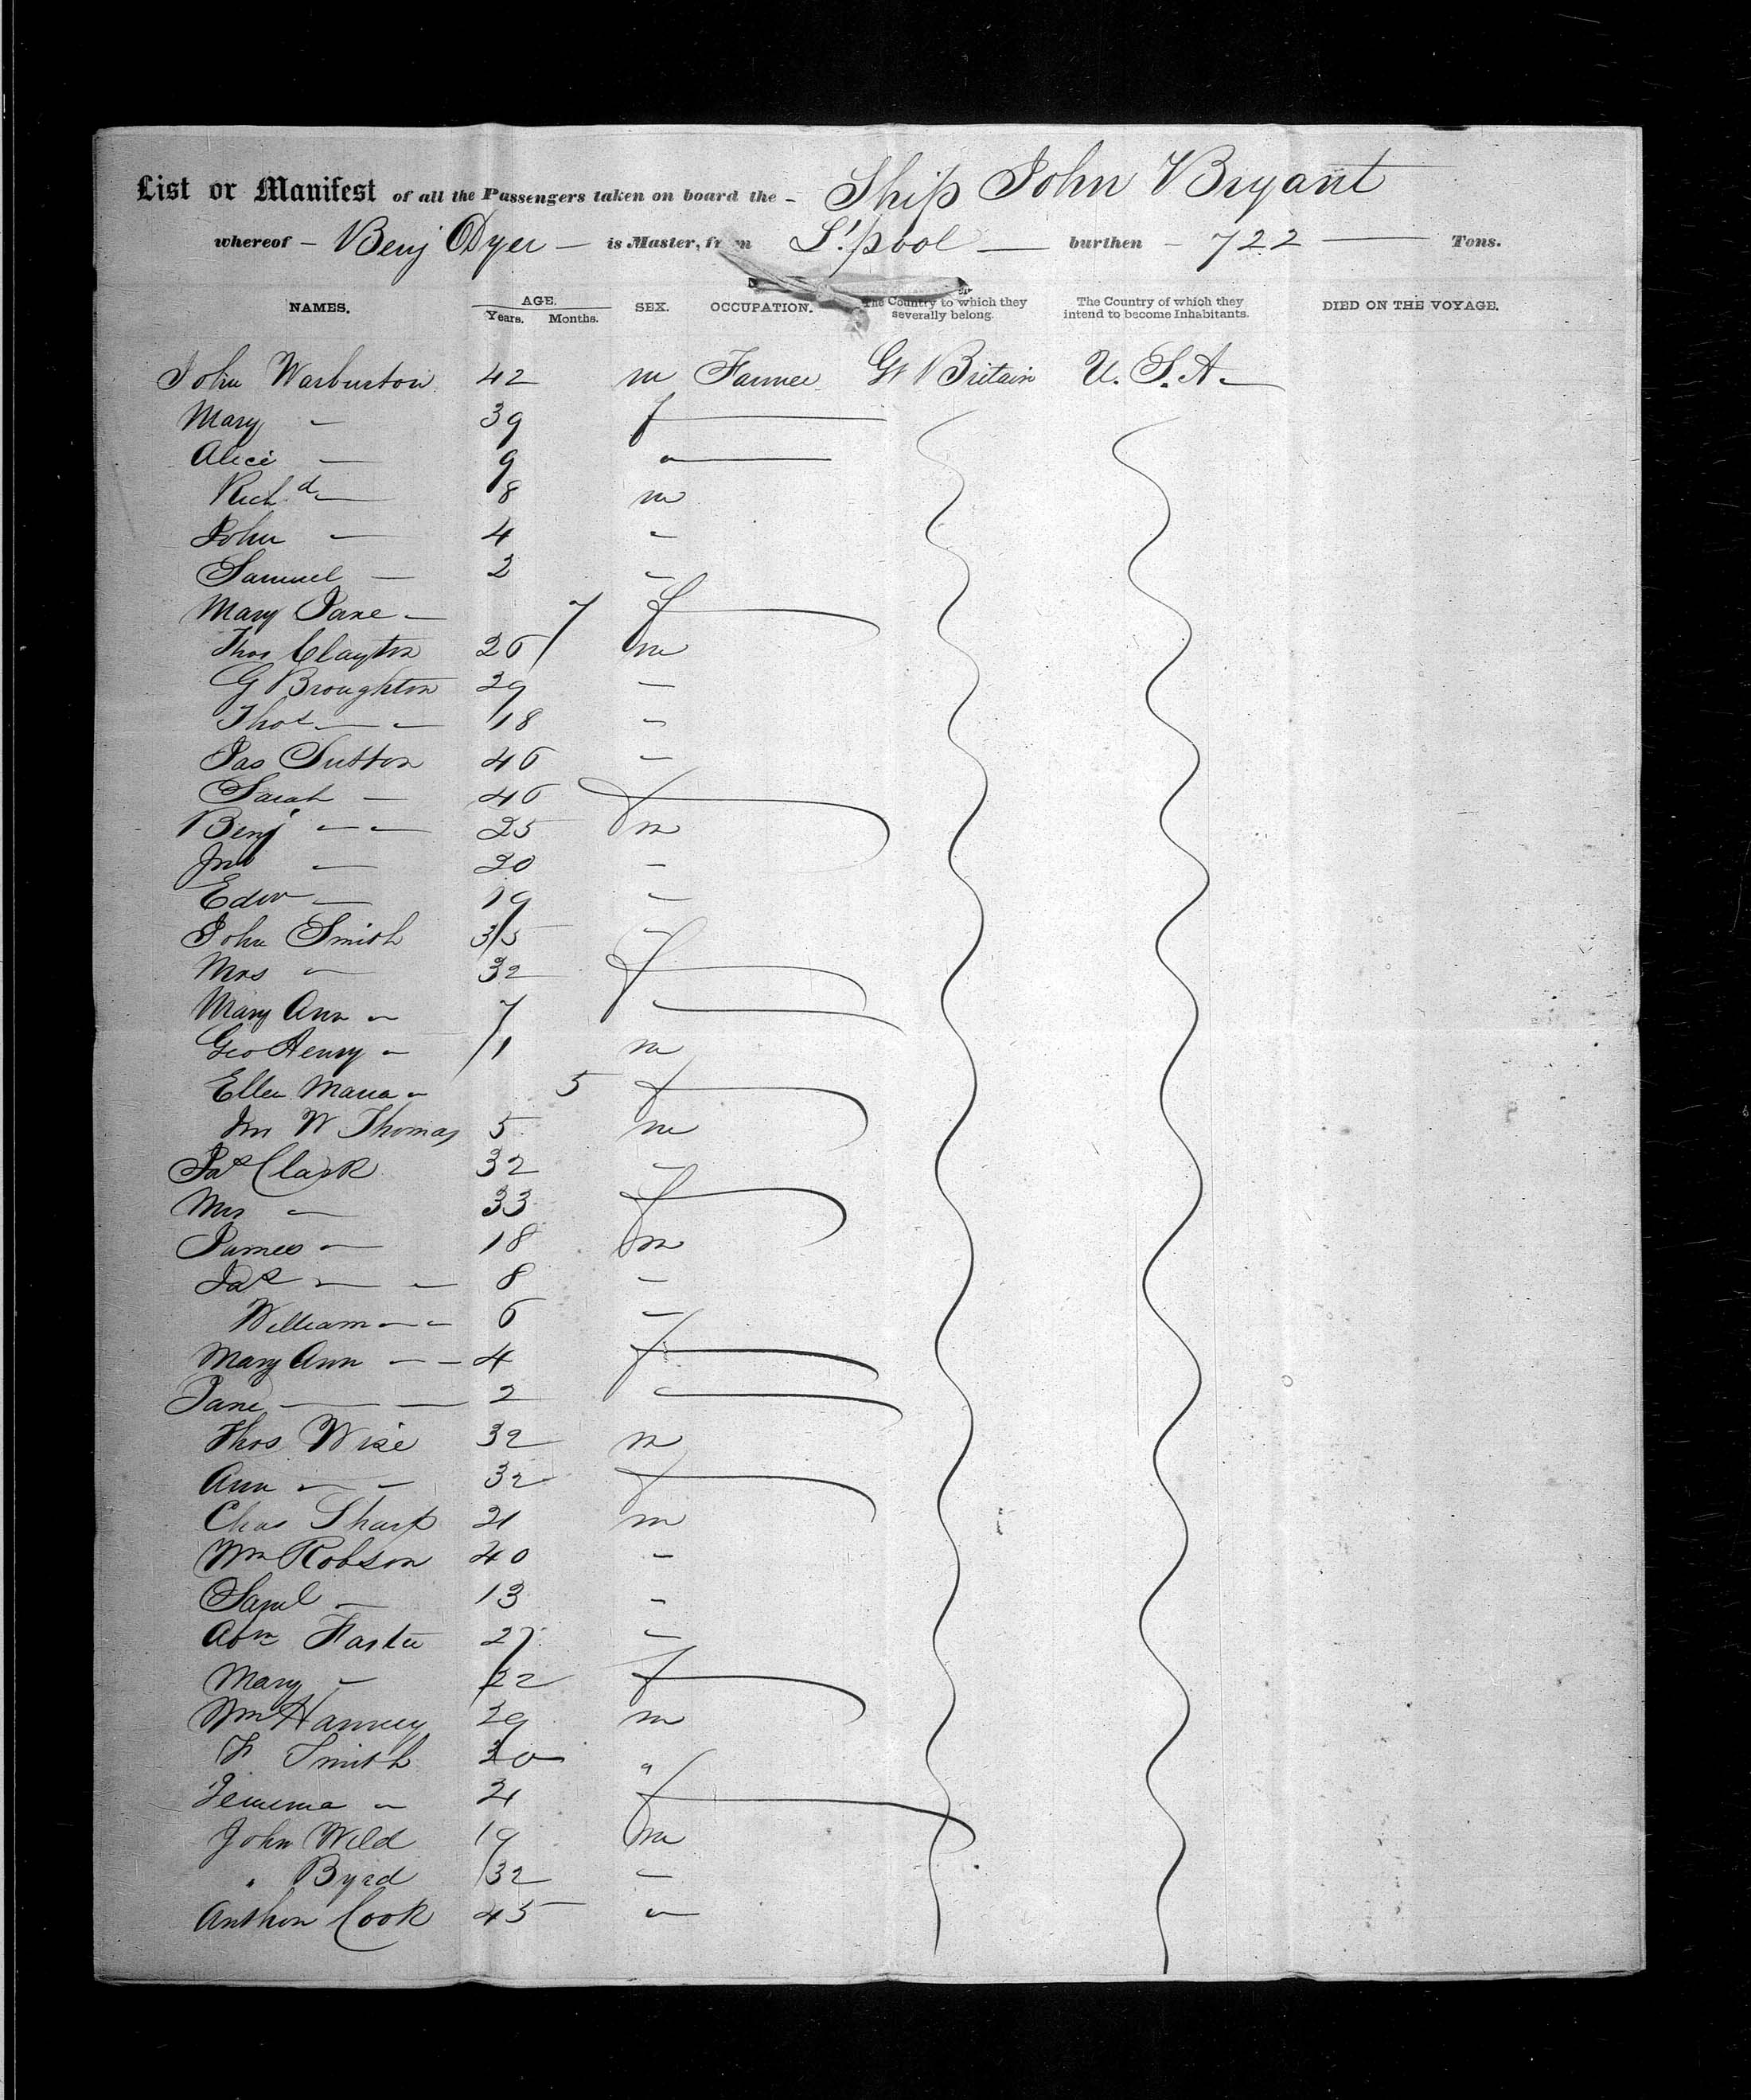 List or Manifest of all the Passengers taken on board the - Ship John Bryant
whereof - Benj Dyer - is Master, from L'pool - burthen - 722 - Tons.
NAMES. AGE. Years. Months. SEX. OCCUPATION. The Country to which they severally belong. The Country of which they intend to become Inhabitants. DIED ON THE VOYAGE.
John Warburton 42 m Farmer Gt Britain U.S.A -
Mary - 39 f
Alice - 9 "
Richd - 8 m
John - 4 -
Samuel - 2 -
Mary Jane - 7 f
Thos Clayton 26 m
G Broughton 29 -
Thos - - 18 -
Jas Sutton 46 -
Sarah - 46 f
Benj - - 25 m
Jno - 20 -
Edw - 19 -
John Smith 35 -
Mrs " 32 f
Mary Ann " 7 -
Geo Henry " 1 m
Ellen Maria " 5 f
Jno W Thomas 5 m
Jas Clark 32 -
Mrs " 33 f
James " 18 m
Jas - - 8 -
William - - 6 -
Mary Ann - - 4 f
Jane - - 2 -
Thos Wise 32 m
Ann - - 32 f
Chas Sharp 21 m
Wm Robson 40 -
Saml - 13 -
Abm 27 -
Mary - 22 f
Wm 29 m
Smith 20 "
Jemima " 21 f
John Wild 19 m
" Byrd 32 -
Anthon Cook 45 "